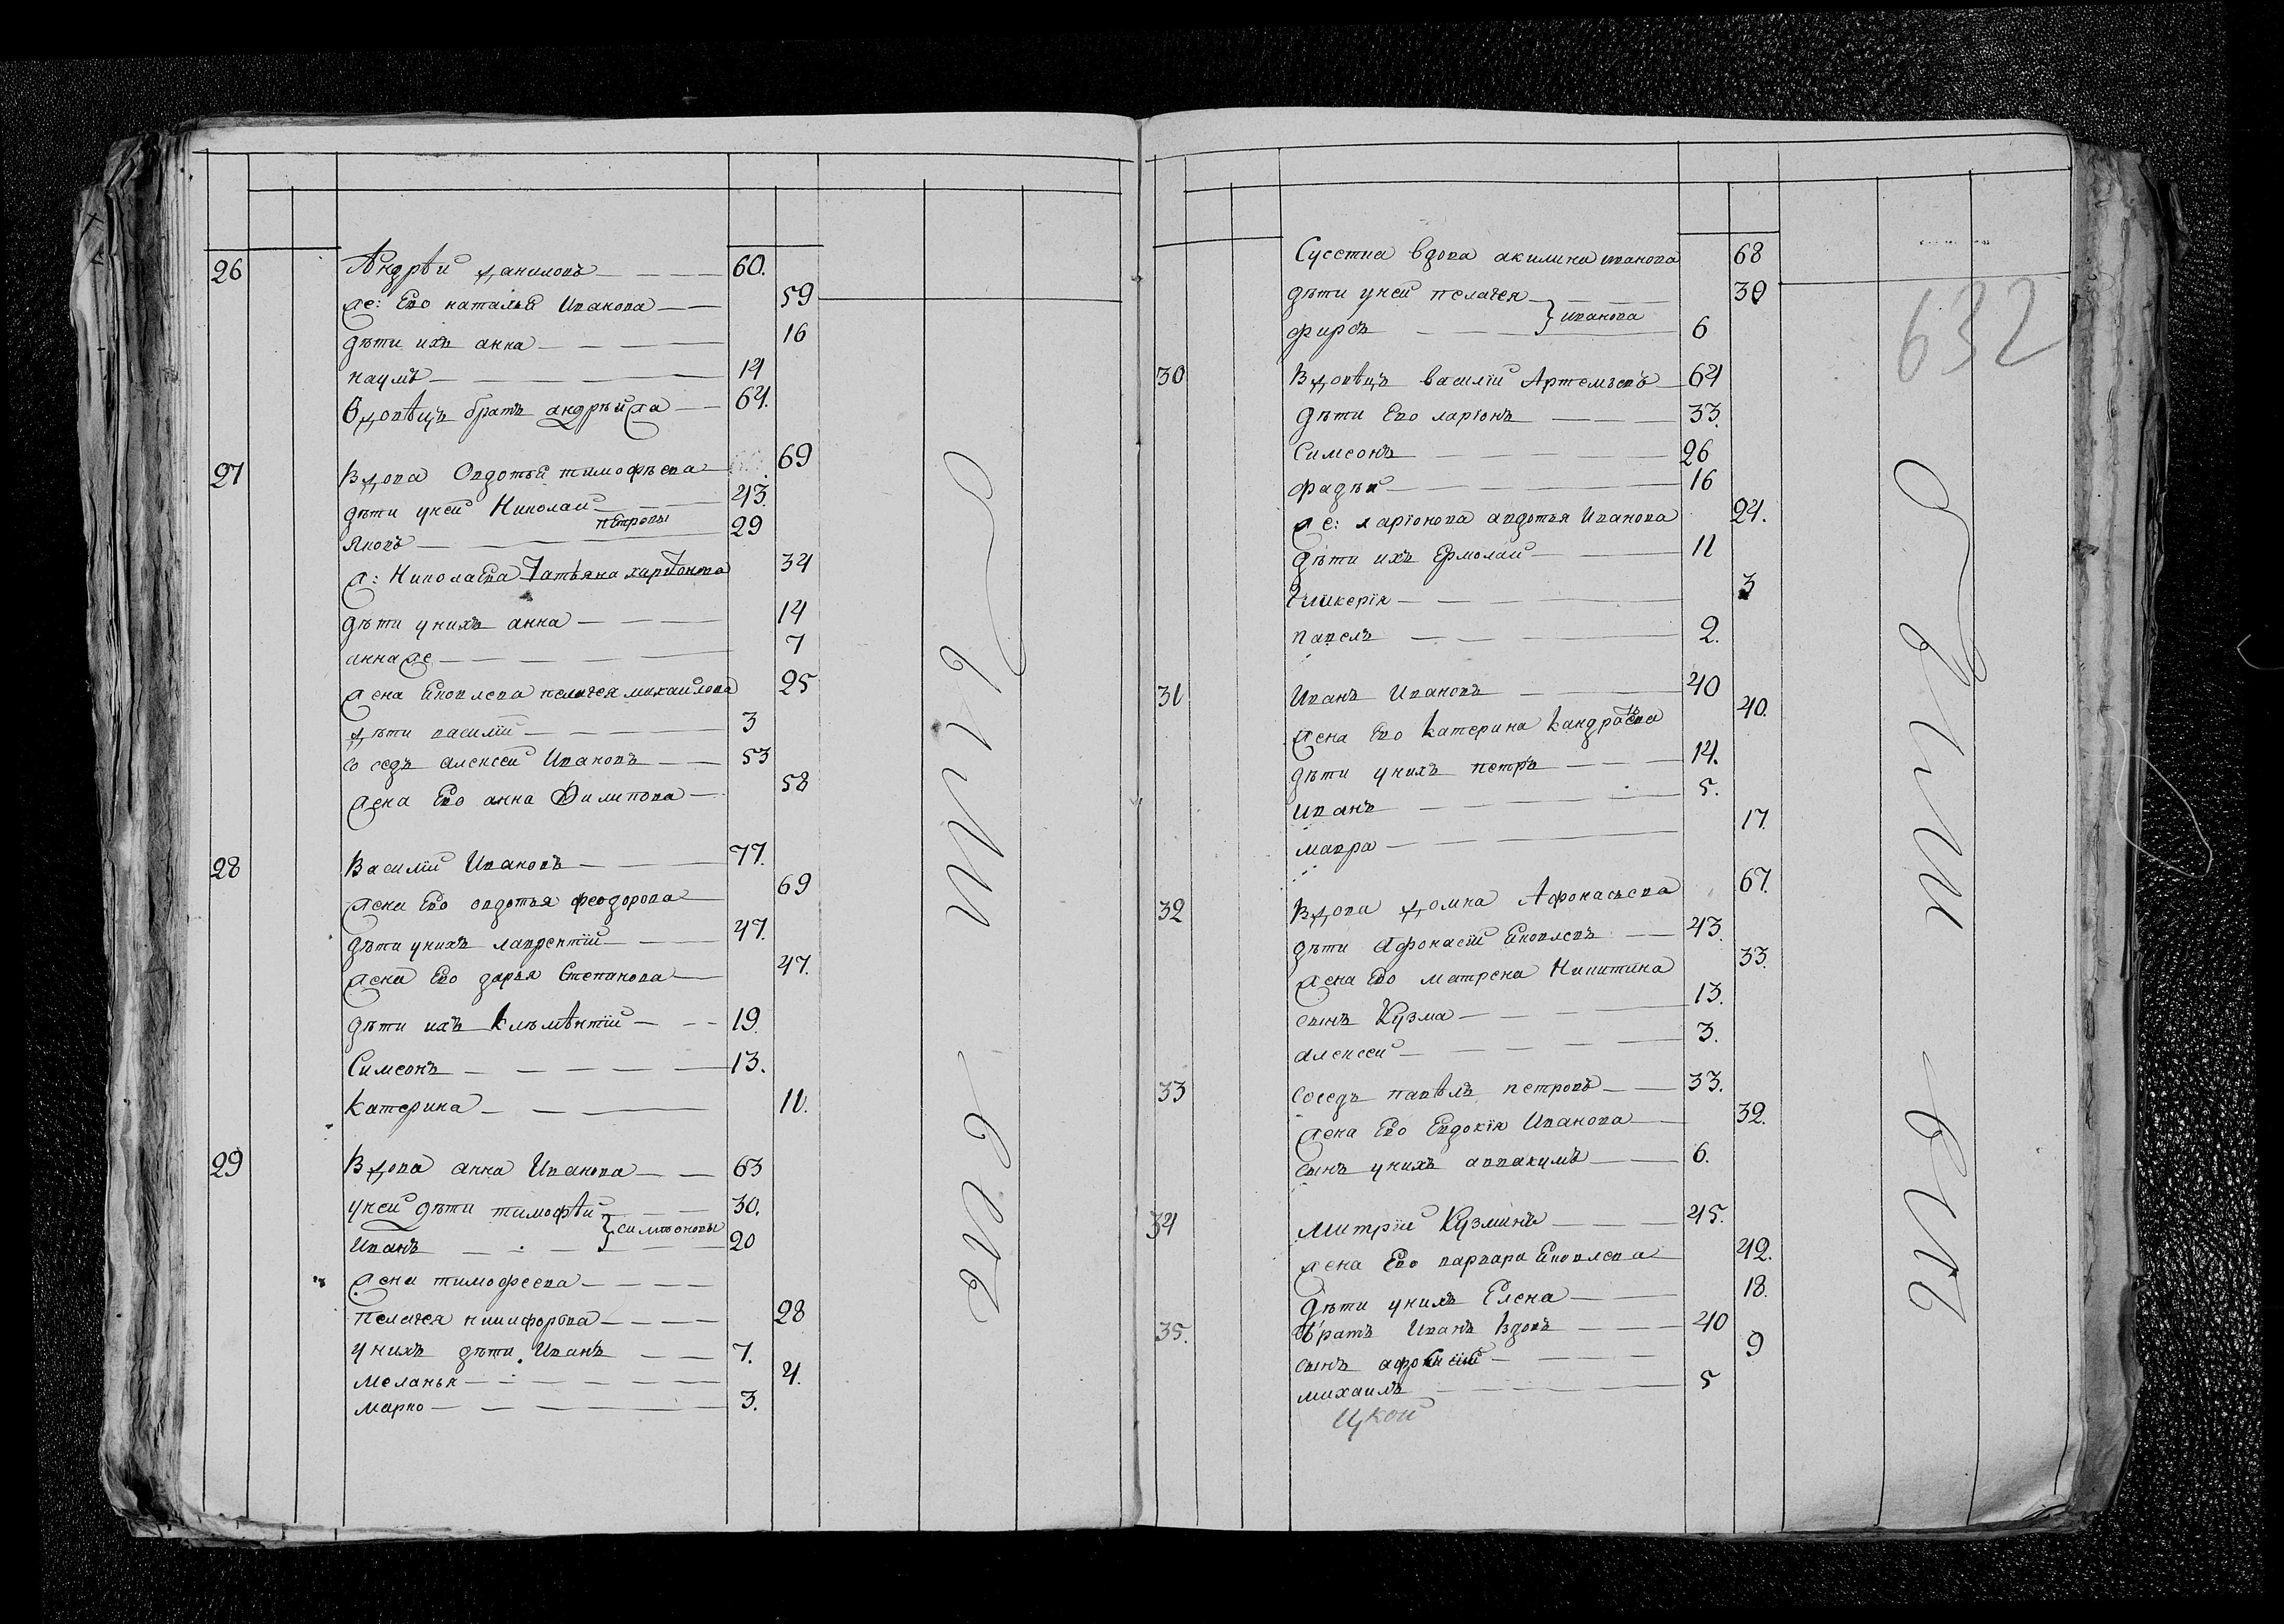 26 Андрѣй Даниловъ 60.
же: Ево наталья Иванова 59
дѣти ихъ анна 16
наумъ 14
Вдовѣцъ братъ андрѣй жа 64.
27 Вдова Овдотья тимофѣева 69
дѣти унеи Николаи 43.
петровы
Яковъ 29
ж: Николаева Татьяна харитонова 34
дѣти унихъ анна 14
анна же 7
жена Яковлева пелагея михаилова 25
дѣти василiи 3
соседъ алексеи Ивановъ 53
жена Ево анна Филипова 58
28 Василiи Ивановъ 77.
жена Ево овдотья феодорова 69
дѣти унихъ лаврентiи 47.
жена Ево дарья Степанова 47.
дѣти ихъ Клѣмѣнтiи 19.
Симеонъ 13.
Катерина 11.
29 Вдова анна Иванова 63
унеи дѣти тимофѣи 30.
симеоновы
Иванъ 20
жена тимофеева
пелагея никифорова 28
унихъ дѣти Иванъ 7.
меланья 4.
марко 3.
Суетна вдова акилина иванова 68
дѣти унеи пелагея 30
иванова
фирсъ 6
632
30 Вдовѣцъ василiи Артемьевъ 64
дѣти Ево ларiонъ 33.
Симеонъ 26
фадѣи 16
же: ларiонова авдотья Иванова 24.
дѣти ихъ Ермолаи 11
Гликерiя 3
павелъ 2.
31 Иванъ Ивановъ 40
жена Ево Катерина Кандратьева 40.
дѣти унихъ петръ 14.
иванъ 5.
мавра 17
32 Вдова домна Афонасьева 67.
дѣти Афонасiи Яковлевъ 43.
жена Ево матрена Никитина 33.
сынъ Кузма 13.
алексеи 3.
33 соседъ павѣлъ петровъ 33.
жена Ево Евдокiя Иванова 32.
сынъ унихъ аввакумъ 6.
34 Митрiи Кузминъ 45.
жена Ево варвара Яковлева 42.
дѣти унихъ Елена 18.
35. братъ Иванъ вдовъ 40
сынъ афонасiи 9
михаилъ 5